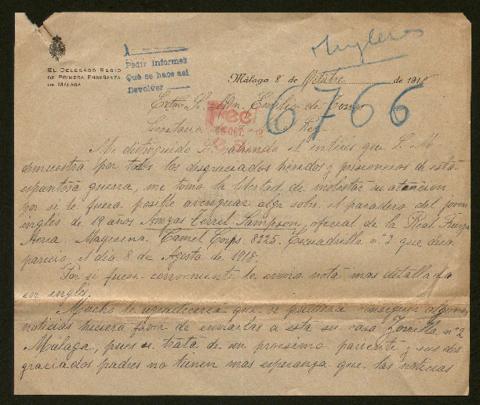 Ingleros
EL DELEGADO REGIO
DE PRIMERA ENSEÑANZA
DE MÁLAGA
Pedir informes
Que se hace así
Devolver
Málaga 8 de Octubre de 1918
6766
Exmo Sr. Dn. Emilio de
Secretario
Mi distinguido el interés que S. M.
demuestra por todos los desgraciados heridos y prisioneros de esta
espantosa guerra, me tomo la libertad de molestar su atención
por si le fuera posible averiguar algo sobre el paradero del joven
inglés de 19 años Cirril Sampson, oficial de la Real Fuerza
Aerea Camel Corps 8225, Escuadrilla nº 3 que desa-
pareció el dia 8 de Agosto de 1918.
Por si fuera conveniente le envio nota mas detallada
en inglés.
Mucho le agradecería que si pudiera conseguir algunas
noticias hiciera favor de enviarlas a esta su casa nº 2
Málaga, pues se trata de un proximo pariente y sus des-
graciados padres no tienen mas esperanza que las noticias